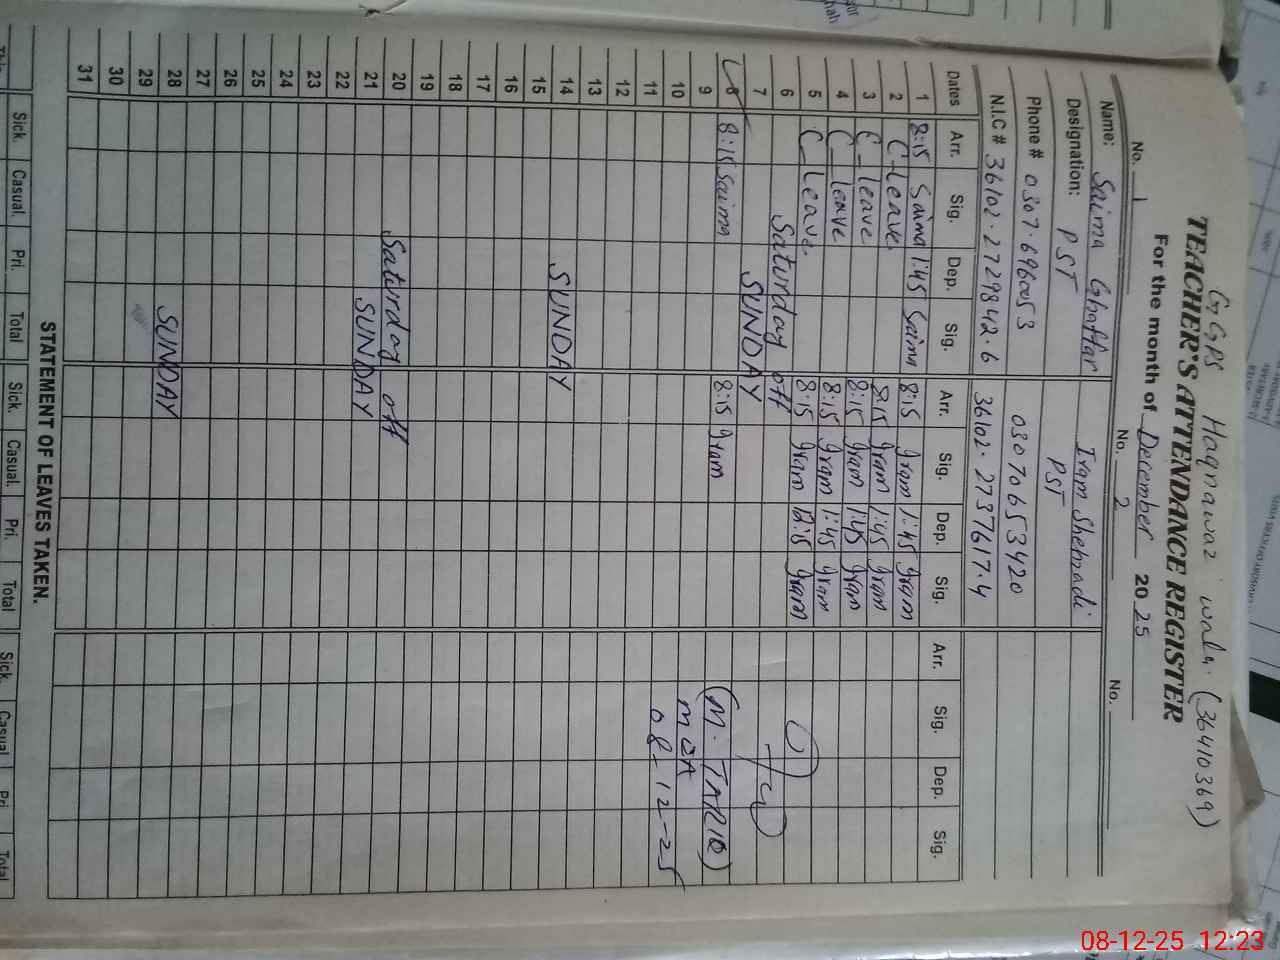 GGPS Haqnawaz wala. (36410369)
TEACHER'S ATTENDANCE REGISTER
For the month of December 2025
No. 1 No. 2 No.
Name: Saima Ghaffar Iram Shehzadi
Designation: PST PST
Phone # 0307.6960053 03070653420
N.I.C # 36102.2729842.6 36102.2737617.4
Dates Arr. Sig. Dep. Sig. Arr. Sig. Dep. Sig. Arr. Sig. Dep. Sig.
1 8:15 Saima 1:45 Saima 8:15 Iram 1:45 Iram
2 C_leave 8:15 Iram 1:45 Iram
3 C_leave 8:15 Iram 1:45 Iram
4 C_leave 8:15 Iram 1:45 Iram
5 C leave 8:15 Iram 12:15 Iram
6 Saturday off
7 SUNDAY
8 8:15 Saima 8:15 Iram (M. TARIQ)
9 MEA
10 08-12-25
11
12
13
14 SUNDAY
15
16
17
18
19
20 Saturday off
21 SUNDAY
22
23
24
25
26
27
28 SUNDAY
29
30
31
STATEMENT OF LEAVES TAKEN.
Sick. Casual. Pri. Total Sick. Casual. Pri. Total Sick. Casual Pri Total
08-12-25 12:23